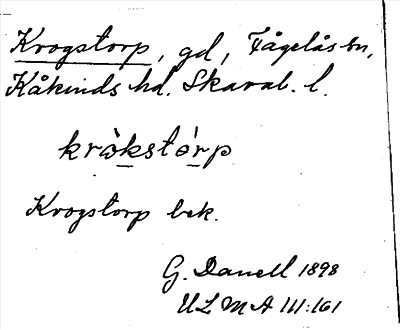 Krogstorp, gd, Fågelås sn,
Kåkinds hd. Skarab. l.
krȯ̀kstó̱ṟp
Krogstorp bek.
G. Danell 1898
ULMA 111:161